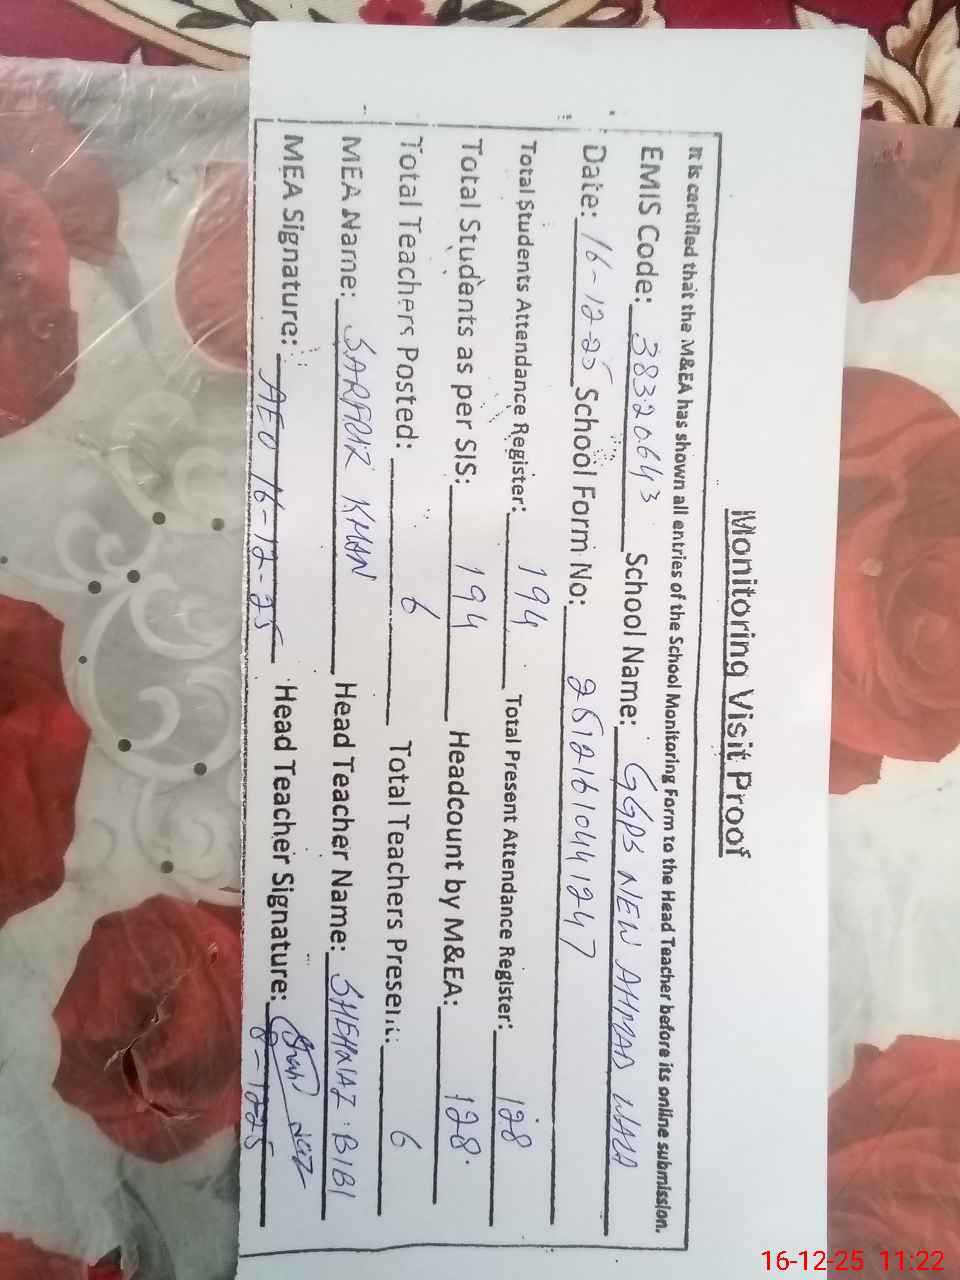 Monitoring Visit Proof
It is certified that the M&EA has shown all entries of the School Monitoring Form to the Head Teacher before its online submission.
EMIS Code: 38320643 School Name: GGPS NEW AHMAD WALA
Date: 16-12-25 School Form No: 25121610441247
Total Students Attendance Register: 194 Total Present Attendance Register: 128
Total Students as per SIS: 194 Headcount by M&EA: 128
Total Teachers Posted: 6 Total Teachers Present: 6
MEA Name: SARFRAZ KHAN Head Teacher Name: SHEHNAZ BIBI
MEA Signature: AEO 16-12-25 Head Teacher Signature:
16-12-25 11:22